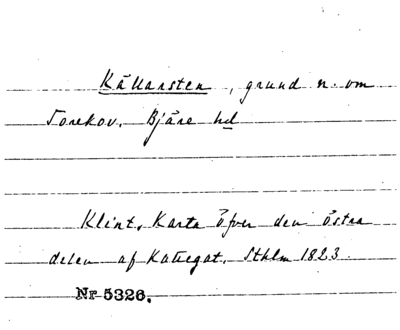 Källarsten, grund n. om
Torekov. Bjäre hd
Klint, Karta öfver den östra
delen af Kattegat. Sthlm 1823.
Nr 5326.